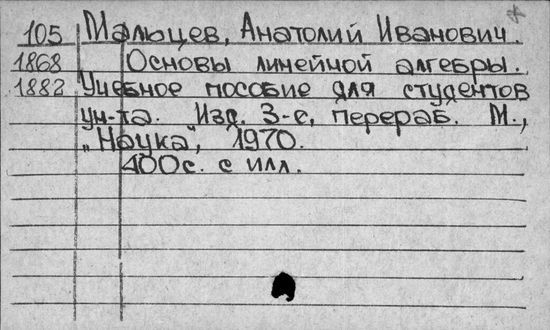 105 Мальцев, Анатолий Иванович.
1868 Основы линейной алгебры.
1882 Учебное пособие для студентов
ун-та. Изд. 3-е, перераб. М.,
„Наука", 1970.
400с. с илл.